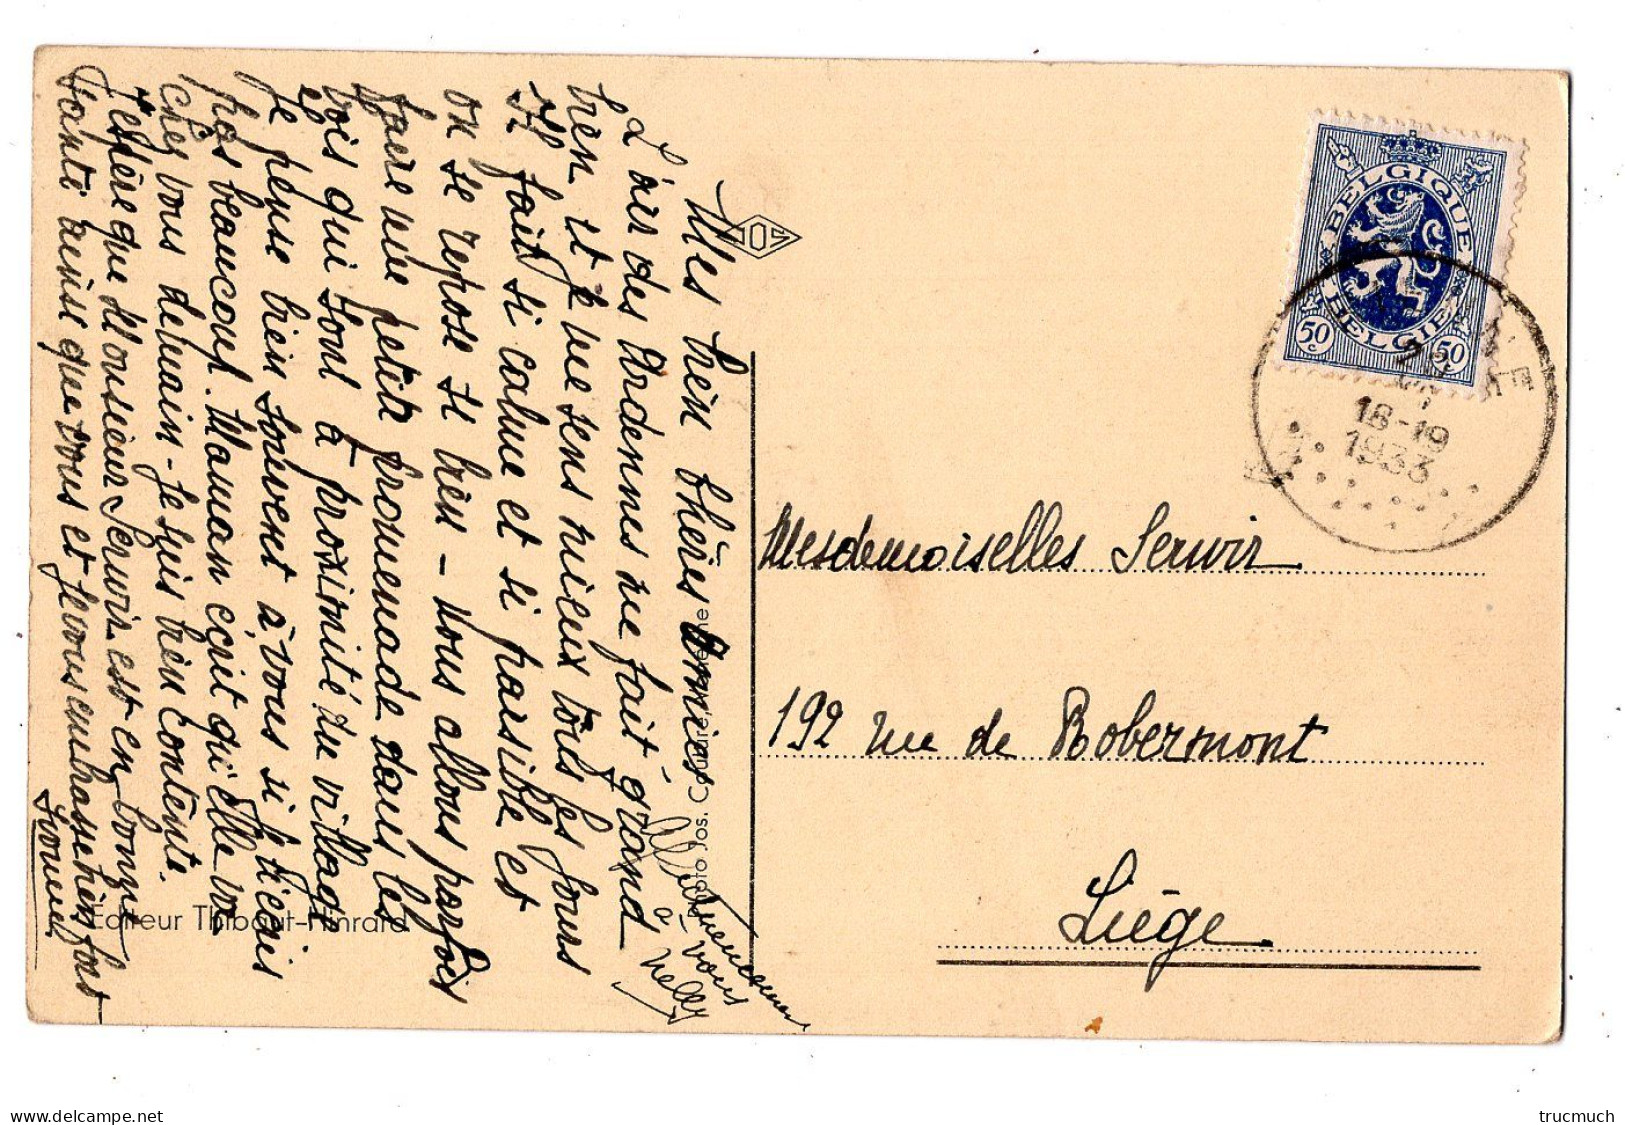 Mes bien chères Amies
L'air des Ardennes me fait grand
bien et je me sens mieux tous les jours
Il fait si calme et si paisible et
on se repose si bien - Nous allons parfois
faire une petite promenade dans les
bois qui sont à proximité du village
Je pense bien souvent à vous si j'écris
pas beaucoup. Maman écrit qu'elle va
chez vous demain - Je suis bien contente.
J'espère que Monsieur Servir est en bonne
santé ainsi que vous et je vous embrasse bien fort
Yvonne
à vous
JOS
Photo Jos. Cuvire
Editeur Thibaut-Hinrard
BELGIQUE
BELGIE
50 c
50 c
18-19
1933
Mesdemoiselles Servir
192 rue de Robermont
Liège
trucmuch
www.delcampe.net